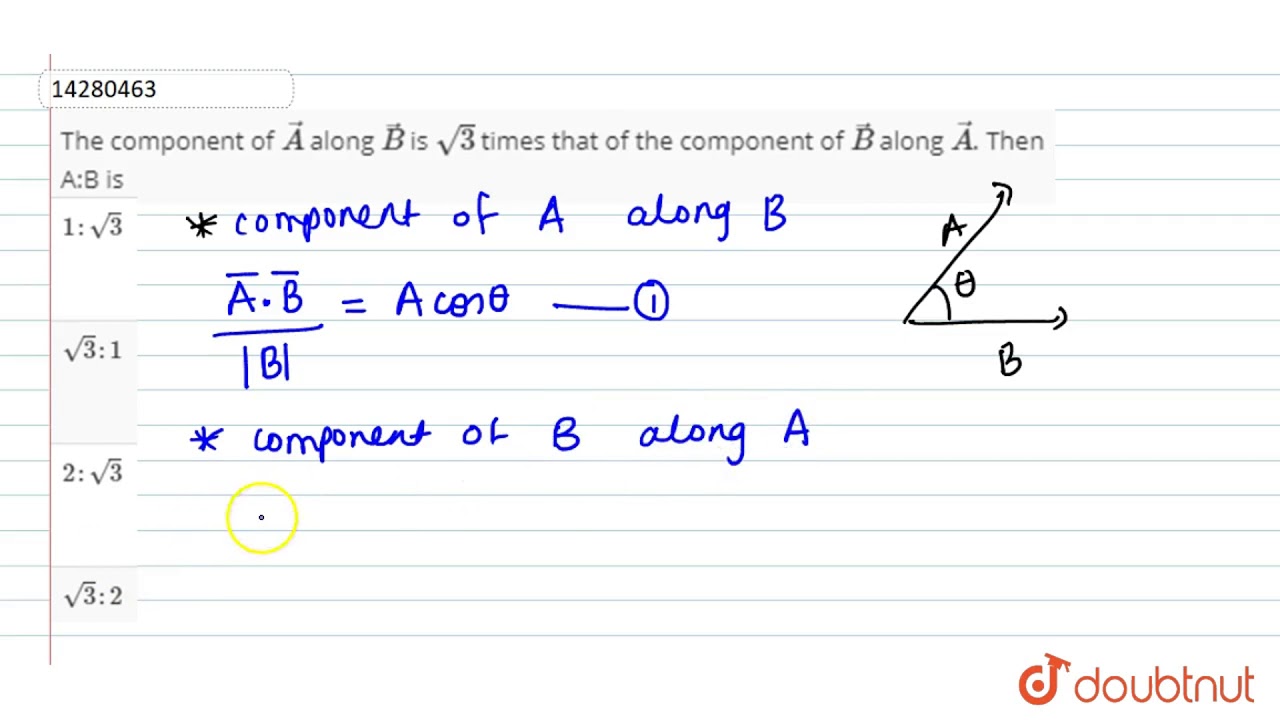 14280463
The component of A⃗ along B⃗ is √3 times that of the component of B⃗ along A⃗. Then
A:B is
1:√3
√3:1
2:√3
√3:2
* component of A along B
A̅.B̅ / |B| = A cosθ —— ①
* component of B along A
A
θ
B
doubtnut